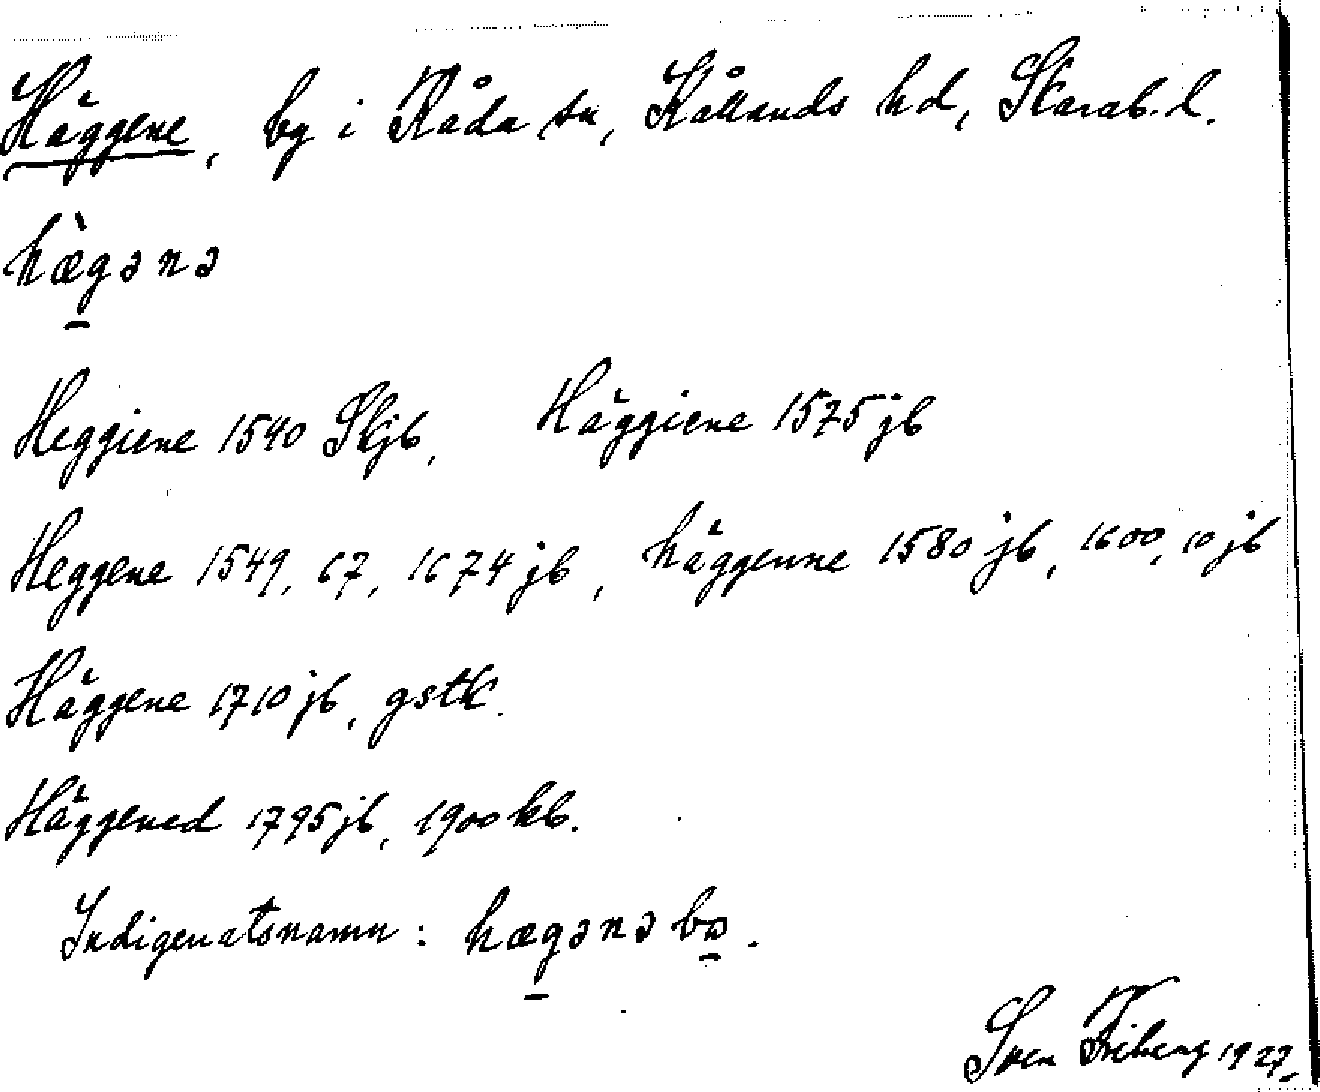 Häggene, by i Råda sn, Kållands hd, Skarab. l.
hæ̀gənə
Heggiene 1540 Skjb, Häggiene 1575 jb
Heggene 1549, 67, 1674 jb, häggenne 1580 jb, 1600, 10 jb
Häggene 1710 jb, gstk.
Häggened 1795 jb, 1900 kb.
Indigenatsnamn: hægənə bo.
Sven Friberg 1927